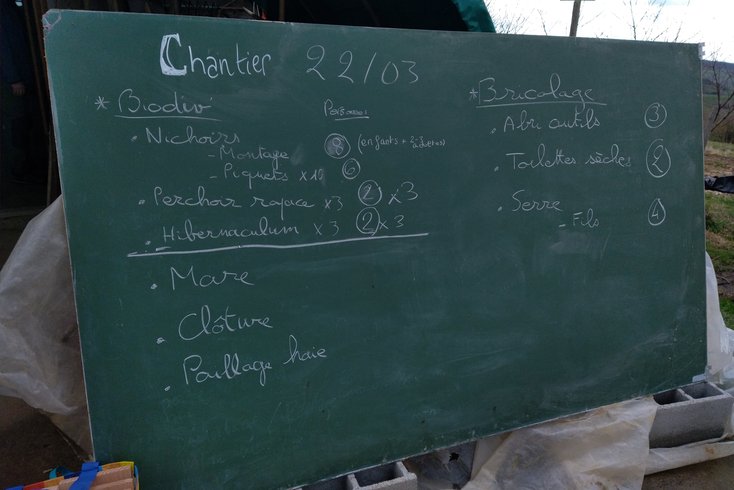 Chantier 22/03
* Biodiv'
Personnes
. Nichoirs
- Montage 8 (enfants + 2-3 adultes)
- Piquets x 10 6
. Perchoir rapace x3 2 x3
. Hibernaculum x3 2 x3
. Mare
. Clôture
. Paillage haie
* Bricolage
. Abri outils 3
. Toilettes sèches 2
. Serre 4
- Fils